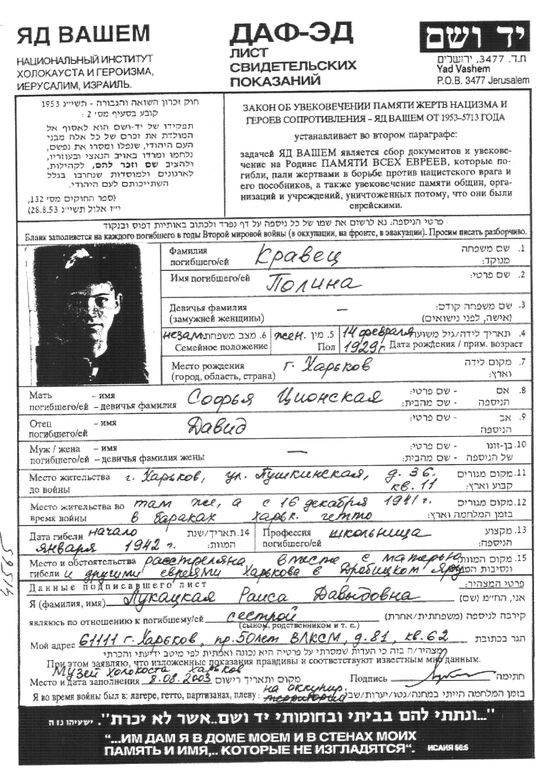 ЯД ВАШЕМ
НАЦИОНАЛЬНЫЙ ИНСТИТУТ
ХОЛОКАУСТА И ГЕРОИЗМА,
ИЕРУСАЛИМ, ИЗРАИЛЬ.
ДАФ-ЭД
ЛИСТ
СВИДЕТЕЛЬСКИХ
ПОКАЗАНИЙ
יד ושם
ת.ד. 3477, ירושלים
Yad Vashem
P.O.B. 3477 Jerusalem
חוק זכרון השואה והגבורה - תשי"ג 1953
קובע בסעיף מס' 2:
תפקידו של יד-ושם הוא לאסוף אל
המולדת את זכרם של כל אלה מבני
העם היהודי, שנפלו ומסרו את נפשם,
נלחמו ומרדו באויב הנאצי ובעוזריו,
ולהציב שם וזכר להם, לקהילות,
לארגונים ולמוסדות שנחרבו בגלל
השתייכותם לעם היהודי.
(ספר החוקים מס' 132,
י"ז אלול תשי"ג 28.8.53)
ЗАКОН ОБ УВЕКОВЕЧЕНИИ ПАМЯТИ ЖЕРТВ НАЦИЗМА И
ГЕРОЕВ СОПРОТИВЛЕНИЯ – ЯД ВАШЕМ ОТ 1953–5713 ГОДА
устанавливает во втором параграфе:
задачей ЯД ВАШЕМ является сбор документов и увековечение
на Родине ПАМЯТИ ВСЕХ ЕВРЕЕВ, которые погибли,
пали жертвами в борьбе против нацистского врага и
его пособников, а также увековечение памяти общин, организаций
и учреждений, уничтоженных потому, что они были
еврейскими.
פרטי הניספה: נא לרשום את שמו של כל ניספה על דף נפרד ולכתוב באותיות דפוס ובנקוד
Бланк заполняется на каждого погибшего в годы Второй мировой войны (в оккупации, на фронте, в эвакуации). Просим писать разборчиво.
Фамилия погибшего/ей Кравец 1. שם משפחה מנוקד:
Имя погибшего/ей Полина 2. שם פרטי:
Девичья фамилия (замужней женщины) — 3. שם משפחה קודם: (אישה, לפני נישואים)
незам. 6. מצב משפחתי Семейное положение жен. 5. מין Пол 14 февраля 1929г. 4. תאריך לידה/גיל משוער Дата рождения / прим. возраст
Место рождения (город, область, страна) г. Харьков 7. מקום לידה וארץ:
Мать погибшего/ей – имя – девичья фамилия Софья Ционская 8. אם הניספה - שם פרטי: - שם מהבית:
Отец погибшего/ей – имя Давид 9. אב הניספה - שם פרטי:
Муж / жена погибшего/ей – имя – девичья фамилия жены — 10. בן-זוגו של הניספה - שם פרטי: - שם מהבית:
Место жительства до войны г. Харьков, ул. Пушкинская, д. 36. кв. 11 11. מקום מגורים קבוע וארץ:
Место жительства во время войны там же, а с 16 декабря 1941г. в бараках Харьк. гетто 12. מקום מגורים בזמן המלחמה וארץ:
Дата гибели начало января 1942 г. 14. תאריך/שנת המוות: Профессия погибшего/ей школьница 13. מקצוע הניספה:
Место и обстоятельства гибели расстреляна, вместе с матерью и другими евреями Харькова в Дробицком Яру 15. מקום המוות ונסיבות
Данные подписавшего лист פרטי המצהיר:
Я (фамилия, имя) Лукацкая Раиса Давидовна אני, הח"מ (שם)
являюсь по отношению к погибшему/ей сестрой (сыном, родственником и т. п.) קירבה לניספה (משפחתית/אחרת)
Мой адрес 61111 г. Харьков, пр. 50лет ВЛКСМ, д. 81, кв. 62 הגר בכתובת
מצהיר/ה בזה כי העדות שמסרתי על פרטיה היא נכונה ואמתית לפי מיטב ידיעתי והכרתי
При этом заявляю, что изложенные показания правдивы и соответствуют известным мне данным.
Музей холокоста Харьков
Место и дата заполнения 8.08.2003 מקום ותאריך רישום Подпись חתימה
Я во время войны был в: лагере, гетто, партизанах, плену: на оккупир. территории בזמן המלחמה הייתי במחנה/גטו/יערות
41565
"...ונתתי להם בביתי ובחומותי יד ושם..אשר לא יכרת". ישעיהו נו ה
"...ИМ ДАМ Я В ДОМЕ МОЕМ И В СТЕНАХ МОИХ
ПАМЯТЬ И ИМЯ,.. КОТОРЫЕ НЕ ИЗГЛАДЯТСЯ". ИСАИЯ 56:5